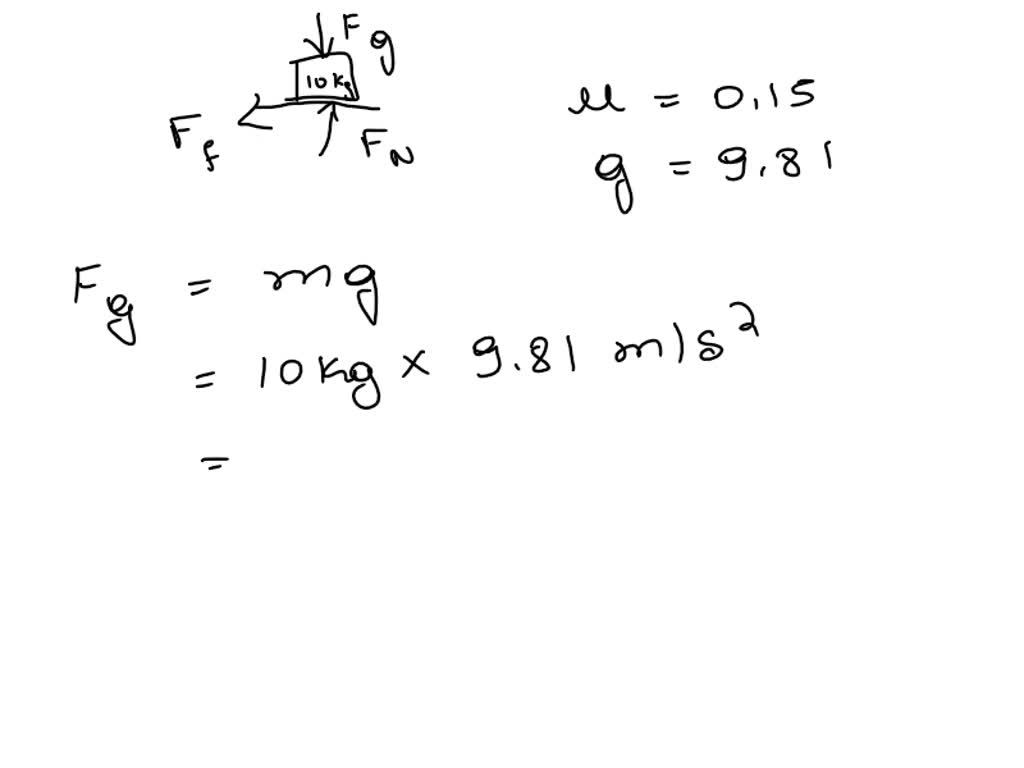 Fg
10 kg
Ff
FN
μ = 0.15
g = 9.81
Fg = mg
= 10 kg × 9.81 m/s²
=